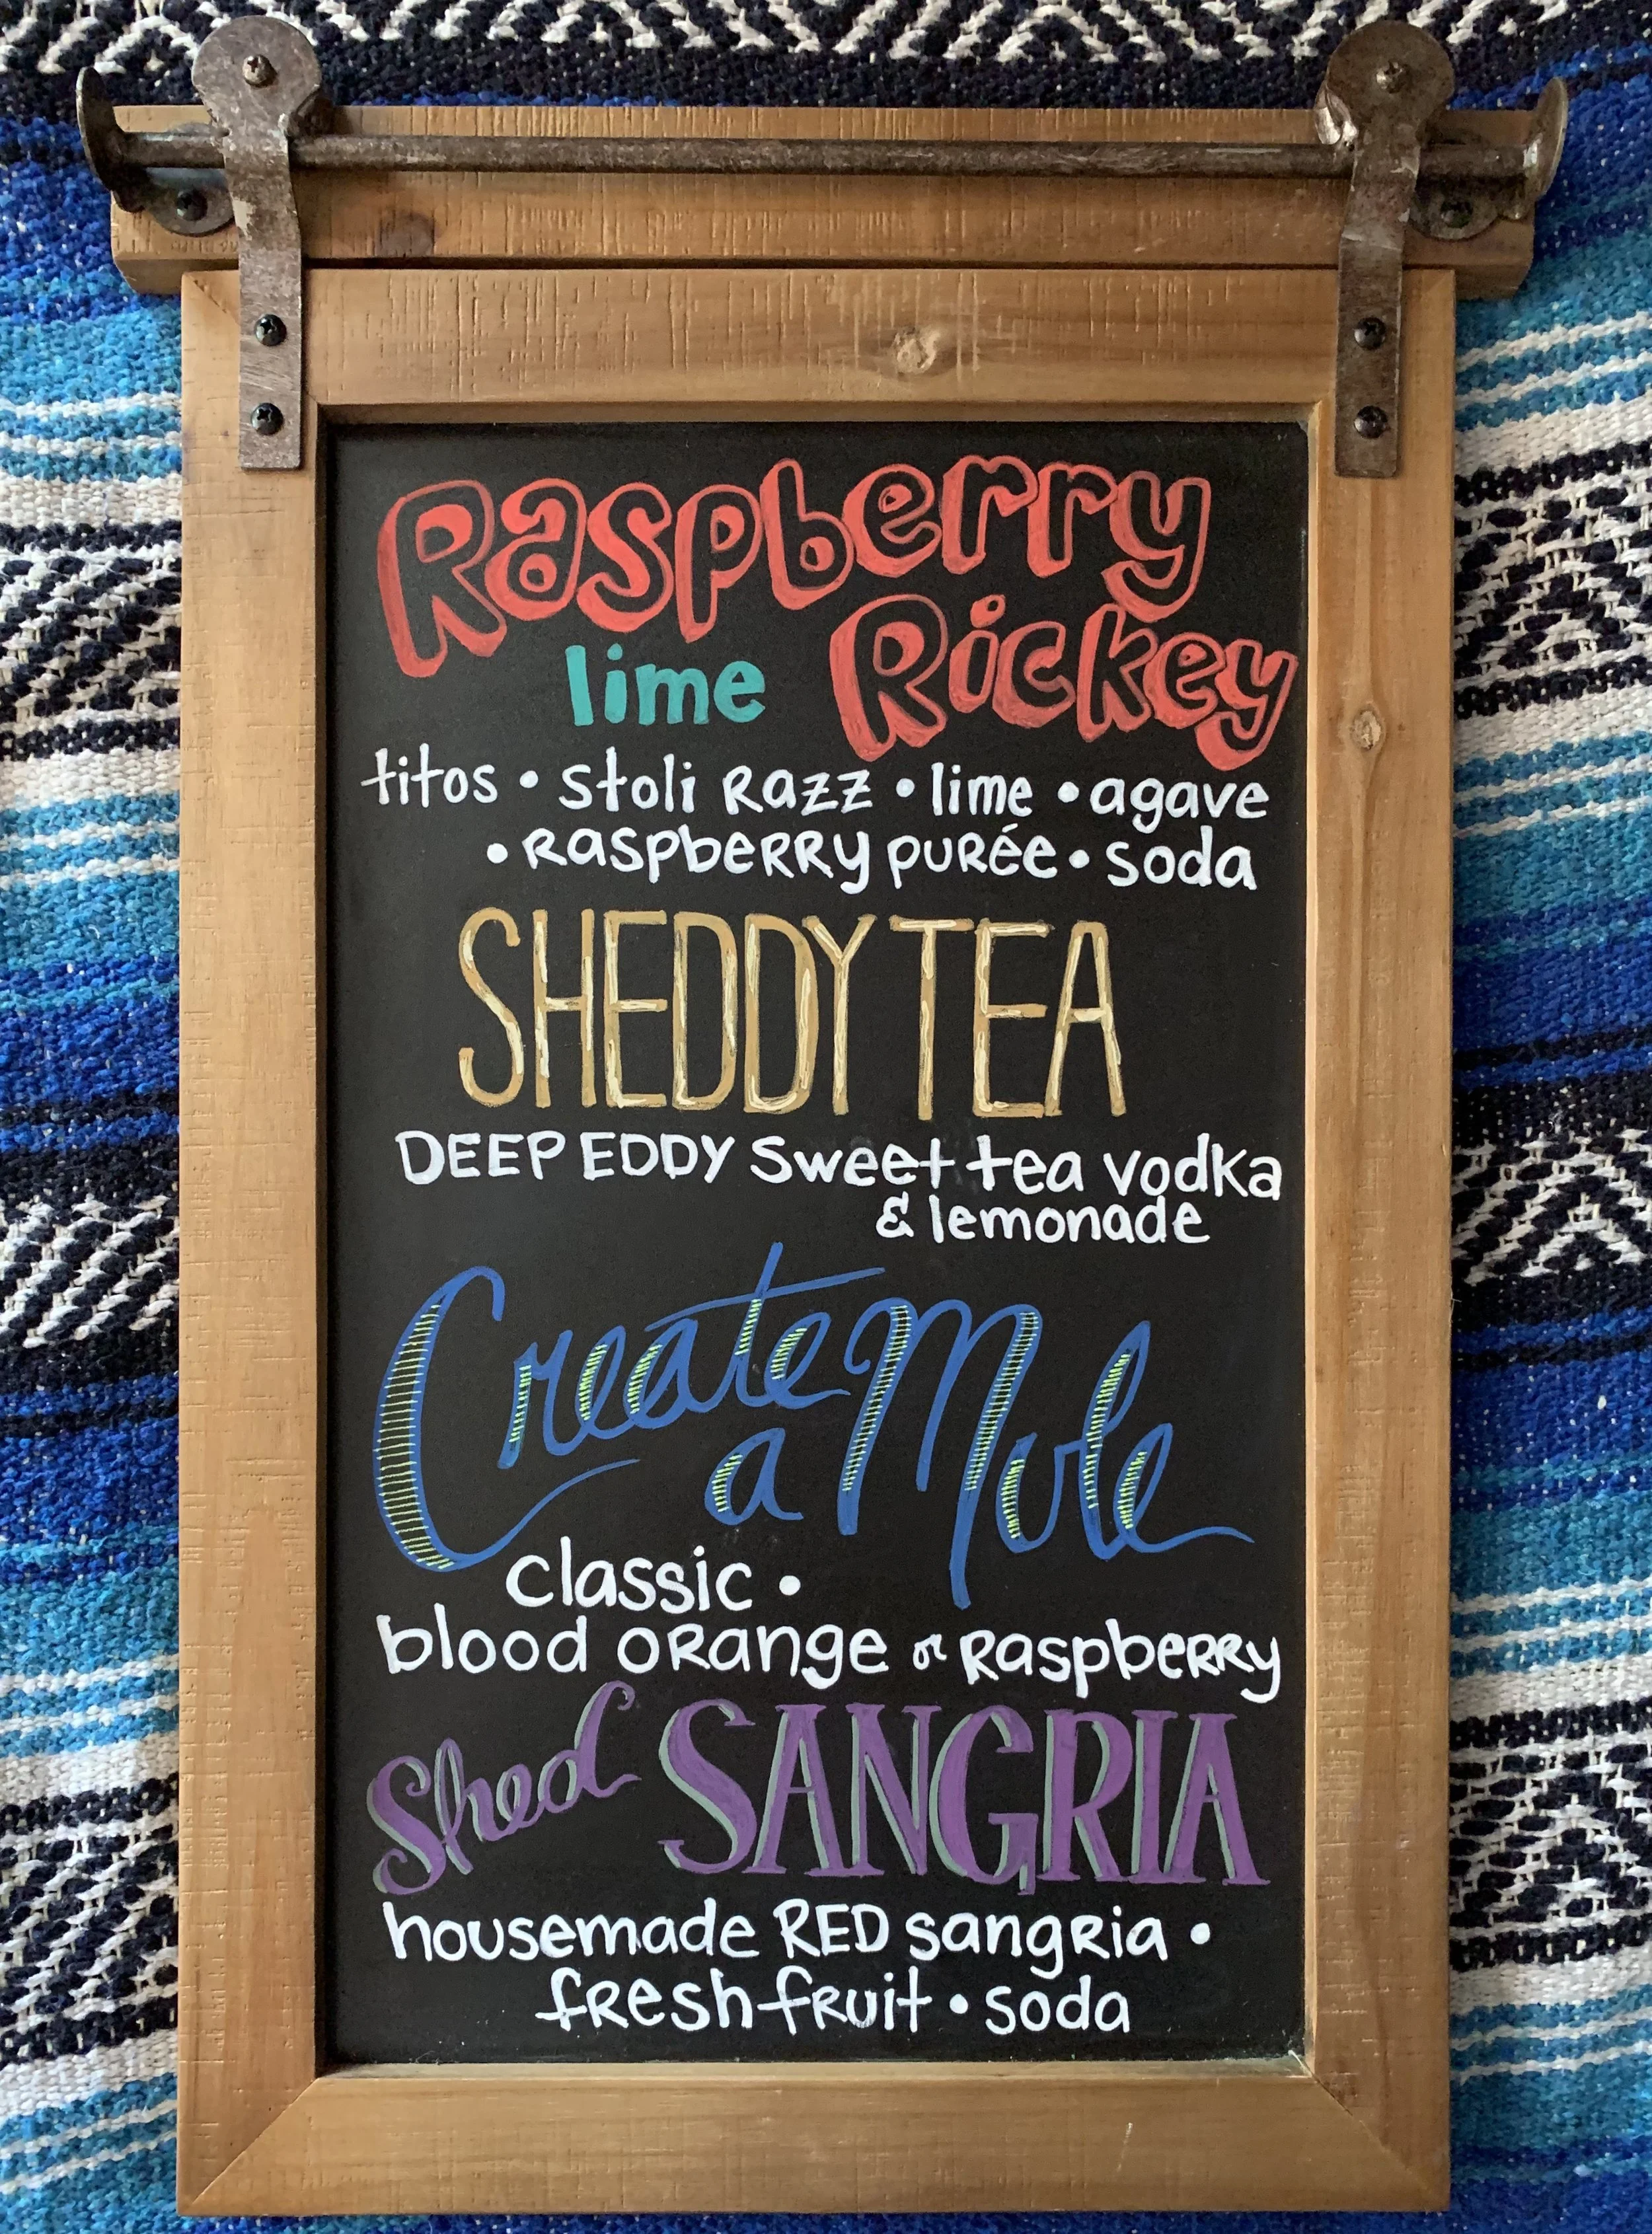 Raspberry
lime Rickey
titos • Stoli Razz • lime • agave
• Raspberry purée • soda
SHEDDY TEA
DEEP EDDY Sweet tea vodka
& lemonade
Create
a Mule
classic •
blood orange or Raspberry
Shed SANGRIA
housemade RED sangria •
fresh fruit • soda